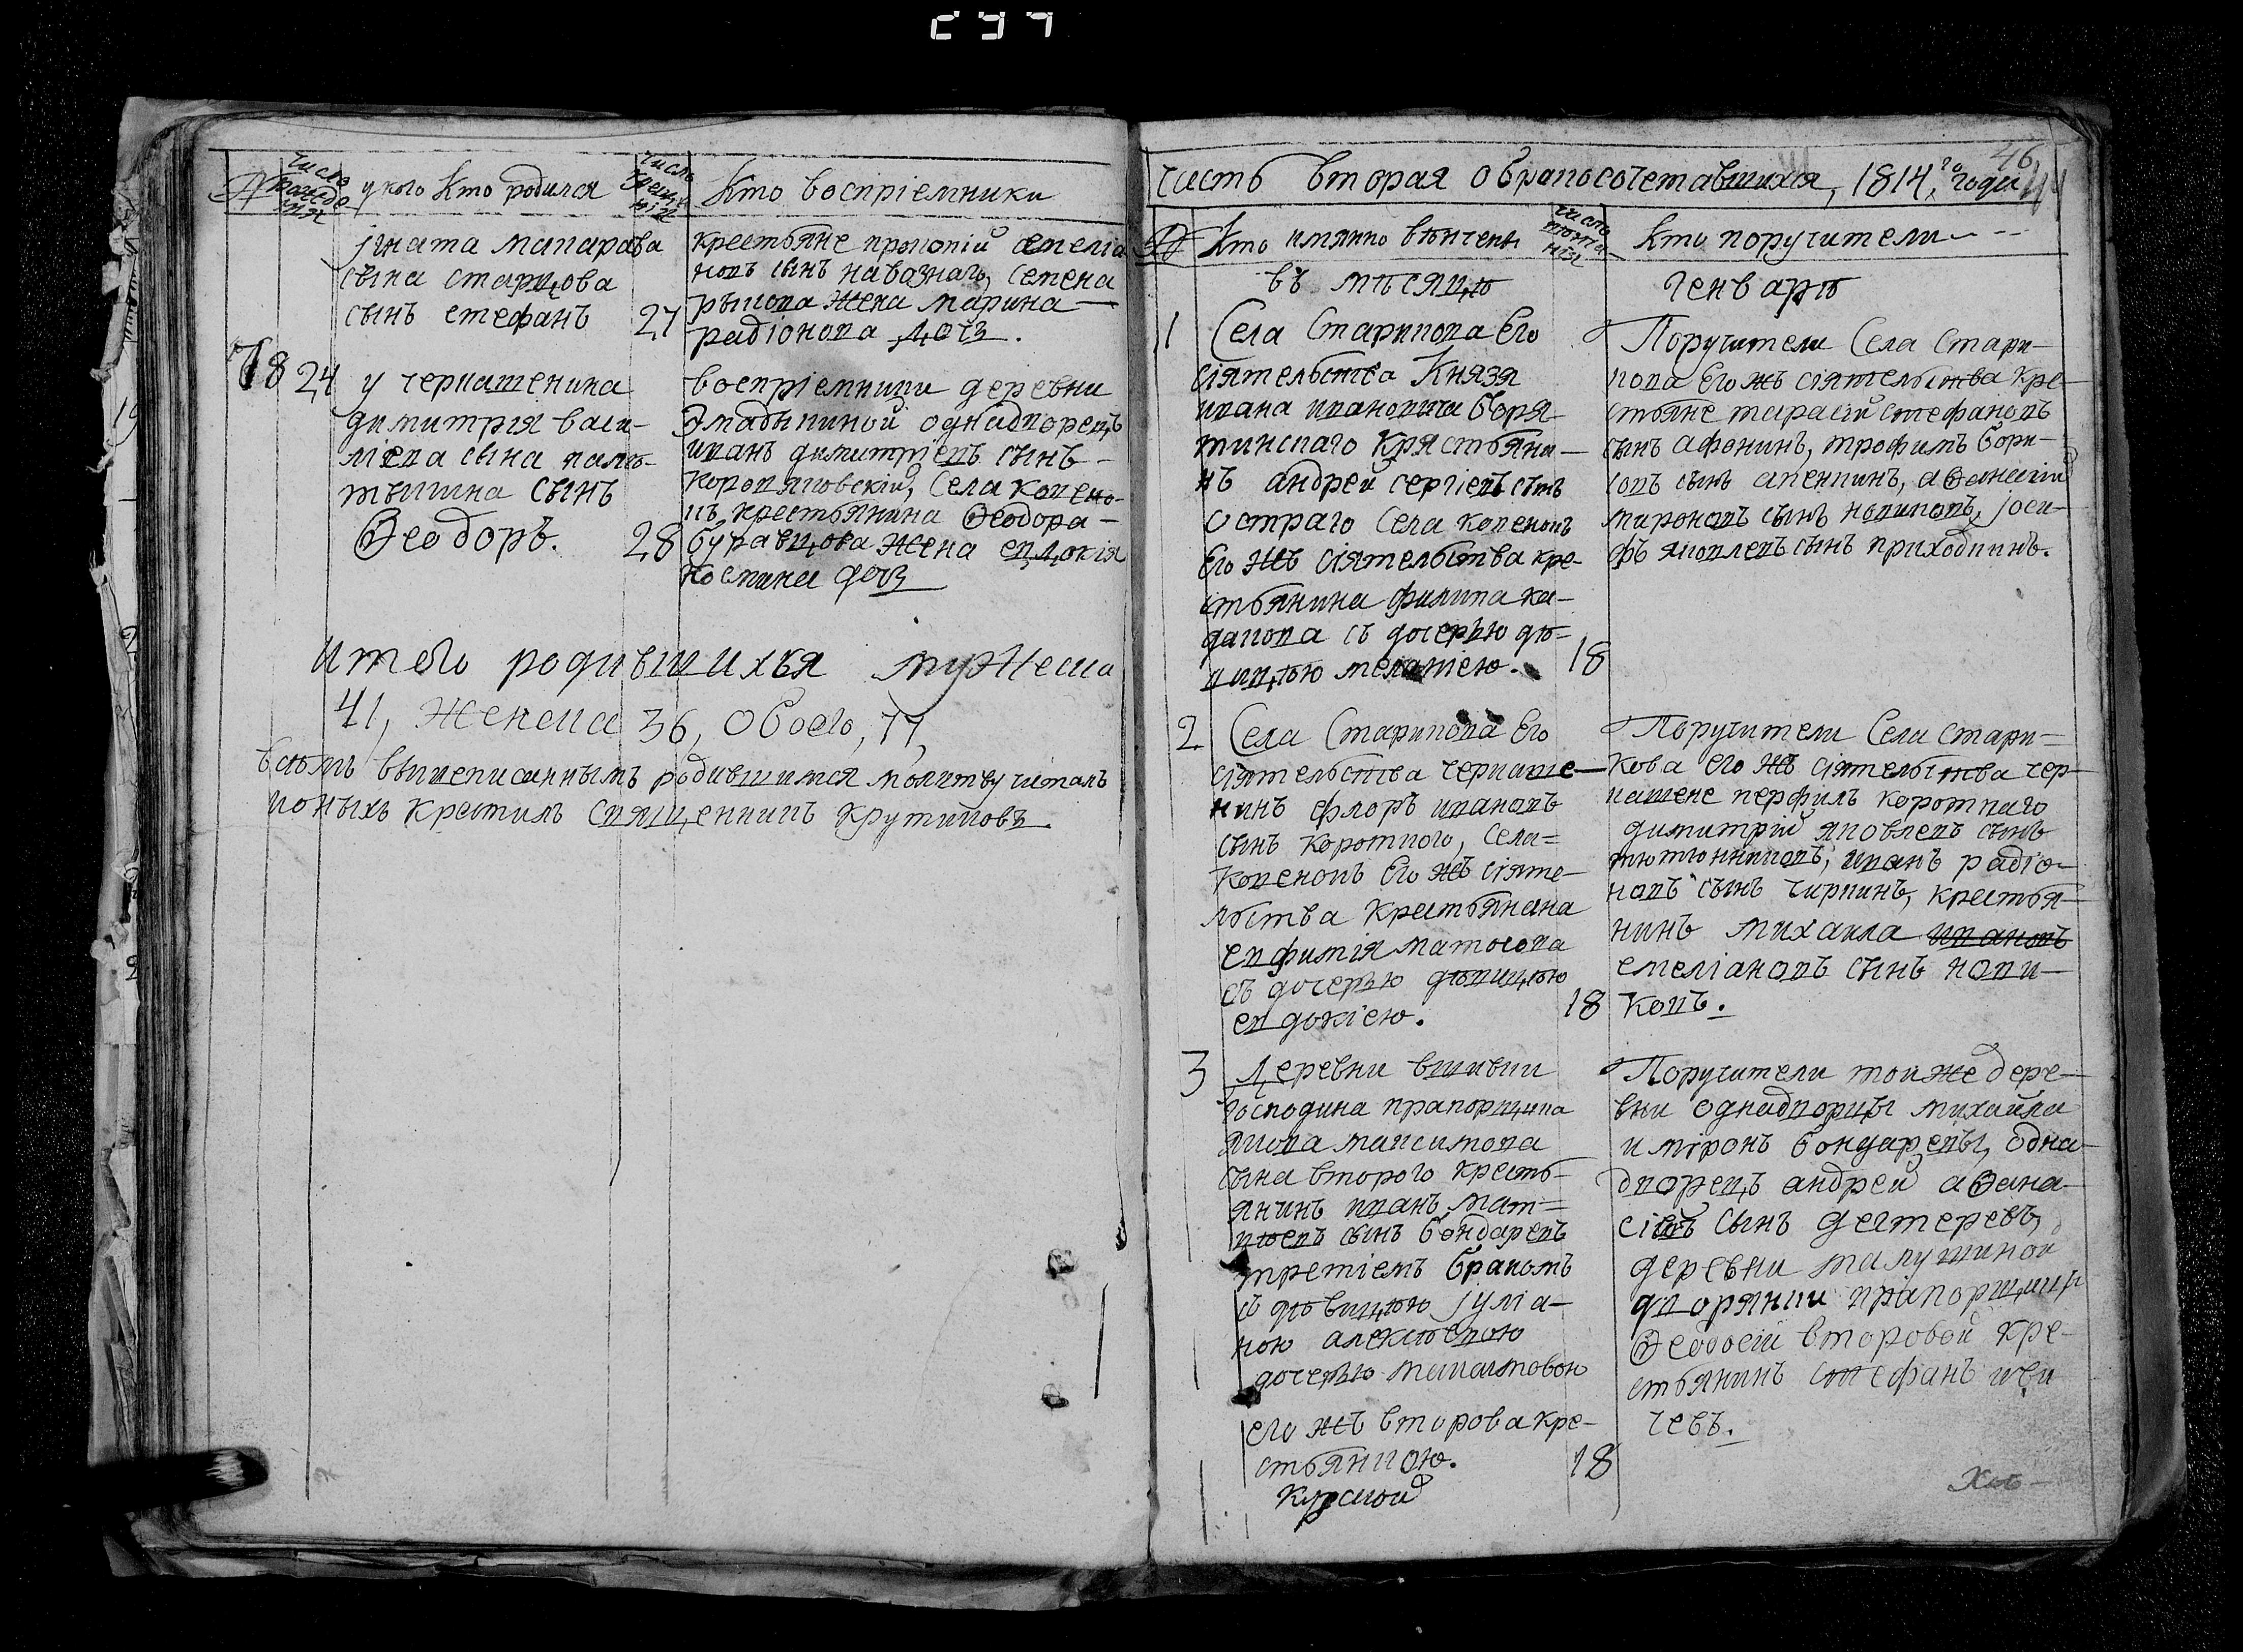 С37
№ число рожде нія у кого кто родился число креще нія кто воспріемники
ігната макарова
сына старцова
сынъ стефанъ 27
крестьяне прокопій емеліа
новъ сынъ навознаго, семена
рыкова жена марина
радіонова дочь.
78 24 у черкашенина
димитрія васи-
сына
сынъ
Ѳеодоръ. 28
воспріемники деревни
однадворецъ
иванъ димитріевъ сынъ
села копено-
въ крестьянина Ѳеодора
буравцова жена евдокія
космина дочь
итого родившихъя мужеска
41, женска 36, обоего, 77,
всѣмъ вышеписаннымъ родившимся молитву читалъ
и оныхъ крестилъ священникъ крутиковъ
часть вторая о бракосочетавшихся, 1814, го года
46
№ кто имянно вѣнчены число вѣнча нія кто поручители
въ мѣсяцѣ генварѣ
1 Села Старикова Его
сіятельства Князя
ивана ивановича боря-
тинскаго Крястьяни-
нъ андрей сергіевъ сынъ
остраго Села копенокъ
Его жъ сіятельства кре-
стьянина филипа ка-
дацкова съ дочерью дѣ-
вицѣю меланіею. 18
Поручители Села стари-
кова Его жъ сіятельства кре-
стьяне тарасій стефановъ
сынъ афонинъ, трофимъ бори-
совъ сынъ апенкинъ, аѲанасій
мироновъ сынъ новиковъ, іоси-
фъ яковлевъ сынъ приходкинъ.
2 Села Старикова Его
сіятельства черкаше-
нинъ флоръ ивановъ
сынъ короткого, села
копенокъ Его жъ сіяте-
льства Крестьянина
евфимія матосова
съ дочерью дѣвицѣю
евдокіею. 18
Поручители Села стари-
кова его жъ сіятельства чер-
кашене перфилъ короткаго
димитрій яковлевъ сынъ
тютюнниковъ, иванъ радіо-
новъ сынъ чиркинъ, крестья-
нинъ михаила ивановъ
емеліановъ сынъ нови-
ковъ.
3 Деревни вшивки
господина прапорщика
якова максимова
сына второго кресть-
янинъ иванъ мат-
вѣевъ сынъ бондаревъ
третіемъ бракомъ
съ дѣвицѣю іуліа-
ною алексѣевою
дочерью
его жъ второва кре-
стьянкою. 18
Курской
Поручители тоиже дере-
вни однадворцы михайла
и міронъ бондаревы, одна-
дворецъ андрей аѲана-
сіевъ сынъ дегтеревъ,
деревни
дворянии прапорщикъ
Ѳеодосій второвой кре-
стьянинъ стефанъ иви
чевъ.